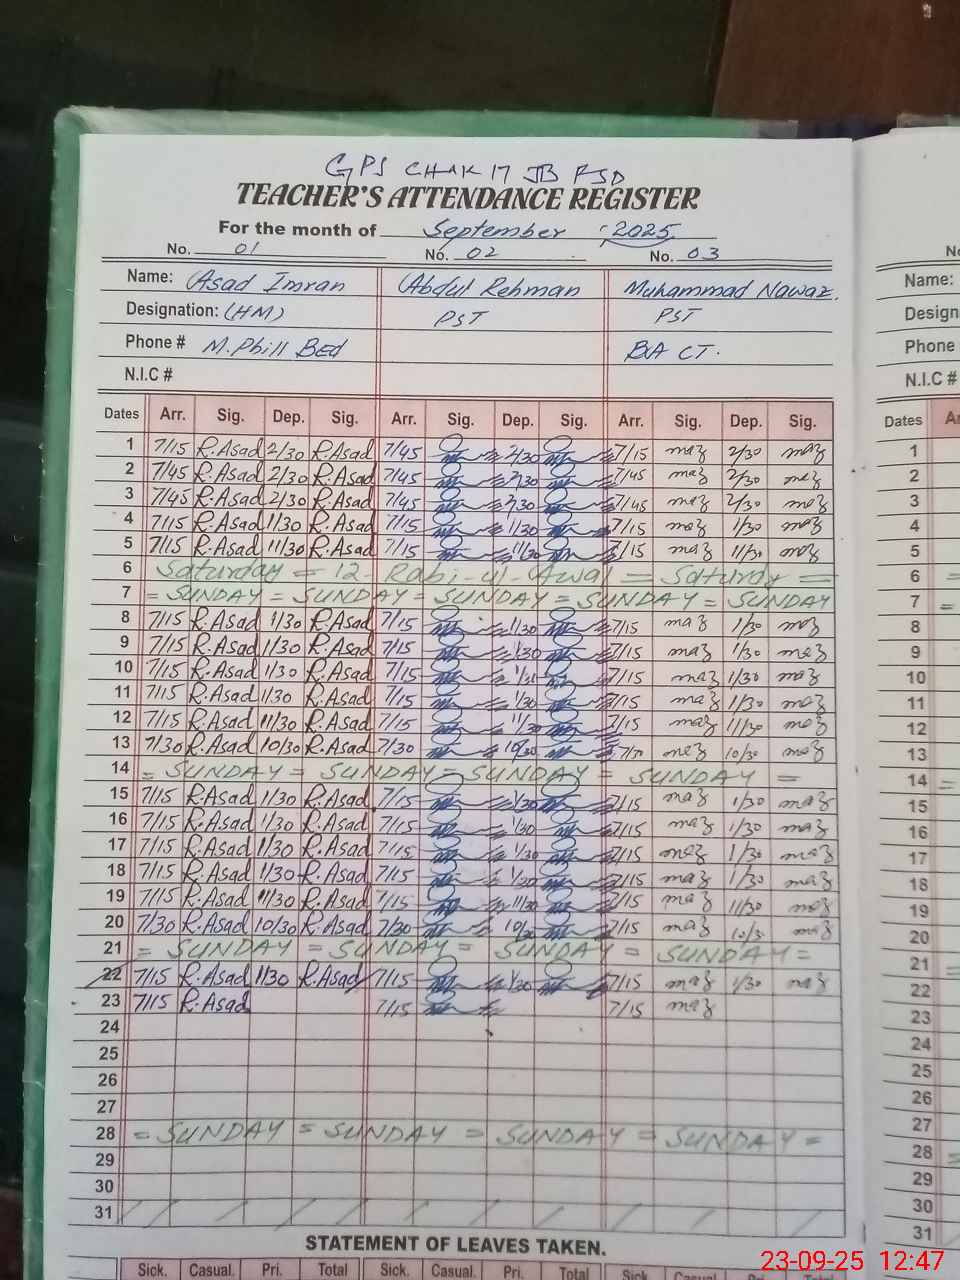 GPS CHAK 17 JB FSD
TEACHER'S ATTENDANCE REGISTER
For the month of September 2025
No. 01 No. 02 No. 03
Name: Asad Imran Abdul Rehman Muhammad Nawaz.
Designation: (HM) PST PST
Phone # M.Phill BEd BA CT.
N.I.C #
Dates Arr. Sig. Dep. Sig. Arr. Sig. Dep. Sig. Arr. Sig. Dep. Sig.
1 7/15 R.Asad 2/30 R.Asad 7/45 2/30 7/15 maz 2/30 maz
2 7/45 R.Asad 2/30 R.Asad 7/45 2/30 7/45 maz 2/30 maz
3 7/45 R.Asad 2/30 R.Asad 7/45 2/30 7/45 maz 2/30 maz
4 7/15 R.Asad 1/30 R.Asad 7/15 1/30 7/15 maz 1/30 maz
5 7/15 R.Asad 11/30 R.Asad 7/15 11/30 7/15 maz 11/30 maz
6 Saturday = 12-Rabi-ul-Awal = Saturday =
7 = SUNDAY = SUNDAY = SUNDAY = SUNDAY = SUNDAY
8 7/15 R.Asad 1/30 R.Asad 7/15 1/30 7/15 maz 1/30 maz
9 7/15 R.Asad 1/30 R.Asad 7/15 1/30 7/15 maz 1/30 maz
10 7/15 R.Asad 1/30 R.Asad 7/15 1/30 7/15 maz 1/30 maz
11 7/15 R.Asad 1/30 R.Asad 7/15 1/30 7/15 maz 1/30 maz
12 7/15 R.Asad 11/30 R.Asad 7/15 11/30 7/15 maz 11/30 maz
13 7/30 R.Asad 10/30 R.Asad 7/30 10/30 7/30 maz 10/30 maz
14 = SUNDAY = SUNDAY = SUNDAY = SUNDAY =
15 7/15 R.Asad 1/30 R.Asad 7/15 1/30 7/15 maz 1/30 maz
16 7/15 R.Asad 1/30 R.Asad 7/15 1/30 7/15 maz 1/30 maz
17 7/15 R.Asad 1/30 R.Asad 7/15 1/30 7/15 maz 1/30 maz
18 7/15 R.Asad 1/30 R.Asad 7/15 1/30 7/15 maz 1/30 maz
19 7/15 R.Asad 11/30 R.Asad 7/15 11/30 7/15 maz 11/30 maz
20 7/30 R.Asad 10/30 R.Asad 7/30 10/30 7/15 maz 10/30 maz
21 = SUNDAY = SUNDAY = SUNDAY = SUNDAY =
22 7/15 R.Asad 1/30 R.Asad 7/15 1/30 7/15 maz 1/30 maz
23 7/15 R.Asad 7/15 7/15 maz
24
25
26
27
28 = SUNDAY = SUNDAY = SUNDAY = SUNDAY =
29
30
31
STATEMENT OF LEAVES TAKEN.
Sick. Casual. Pri. Total Sick. Casual. Pri. Total Sick Casual. Pri. Total
Name:
Phone #
N.I.C #
Dates
1
2
3
4
5
6 =
7 =
8
9
10
11
12
13
14 =
15
16
17
18
19
20
21 =
22
23
24
25
26
27
28 =
29
30
31
23-09-25 12:47